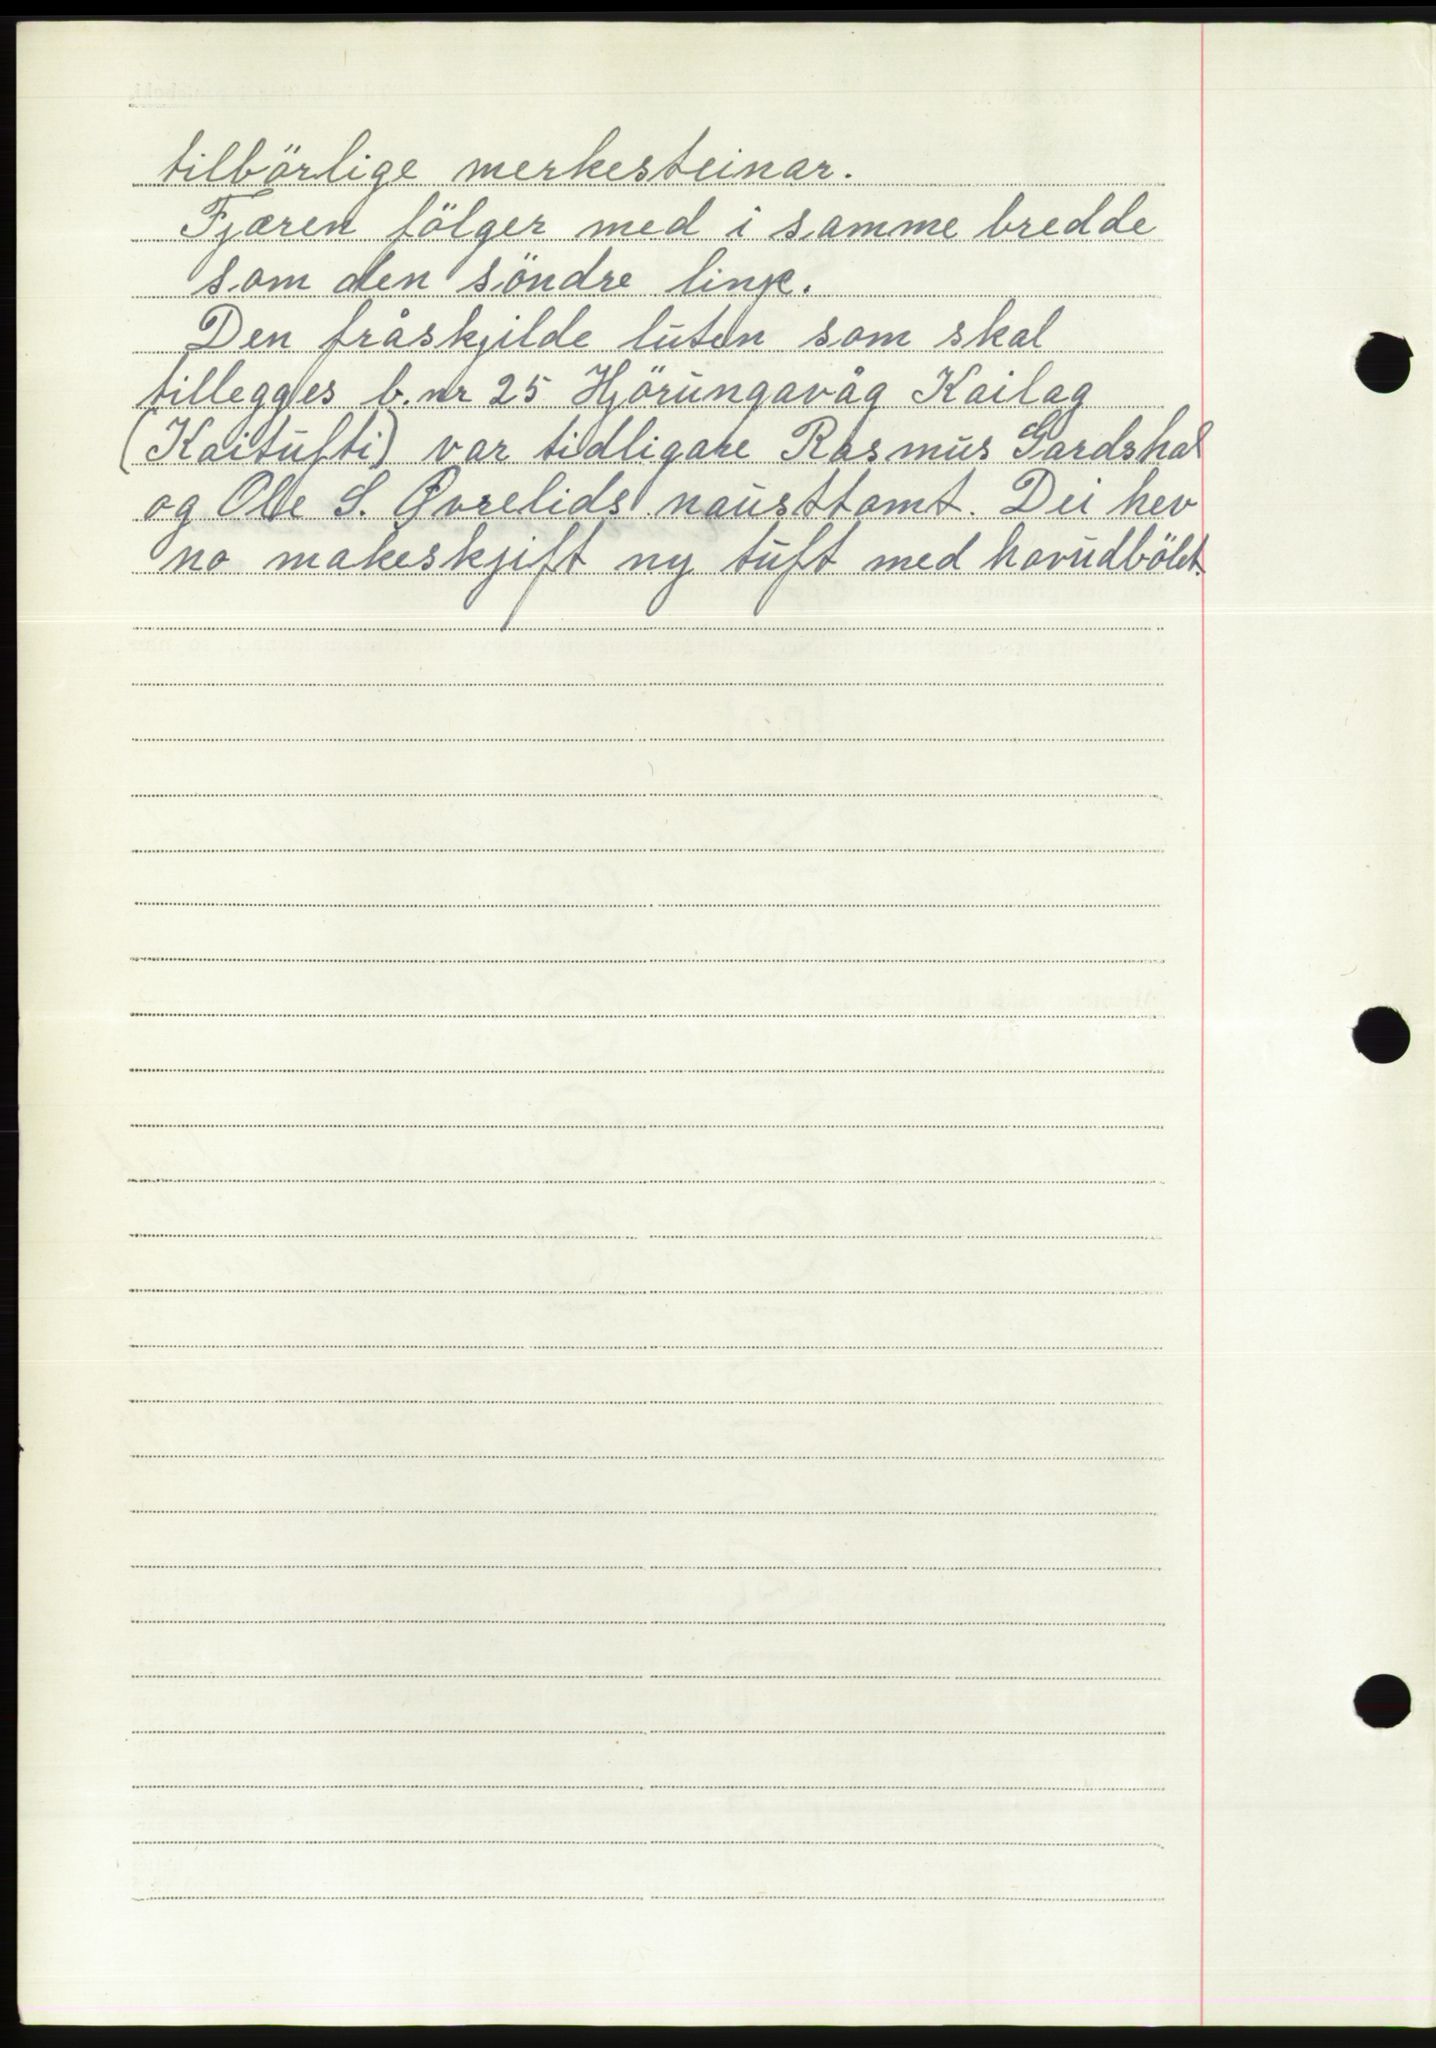 tilbörlige merkesteinar.
Fjæren fölger med i samme bredde
som den söndre linje.
Den fråskjilde luten som skal
tillegges b.nr 25 Hjörungavåg Kailag
(Kaitufti) var tidligare Rasmus Gardshal
og Ole S. Øvrelids nausttomt. Dei hev
no makeskjift ny tuft med hovudbölet.